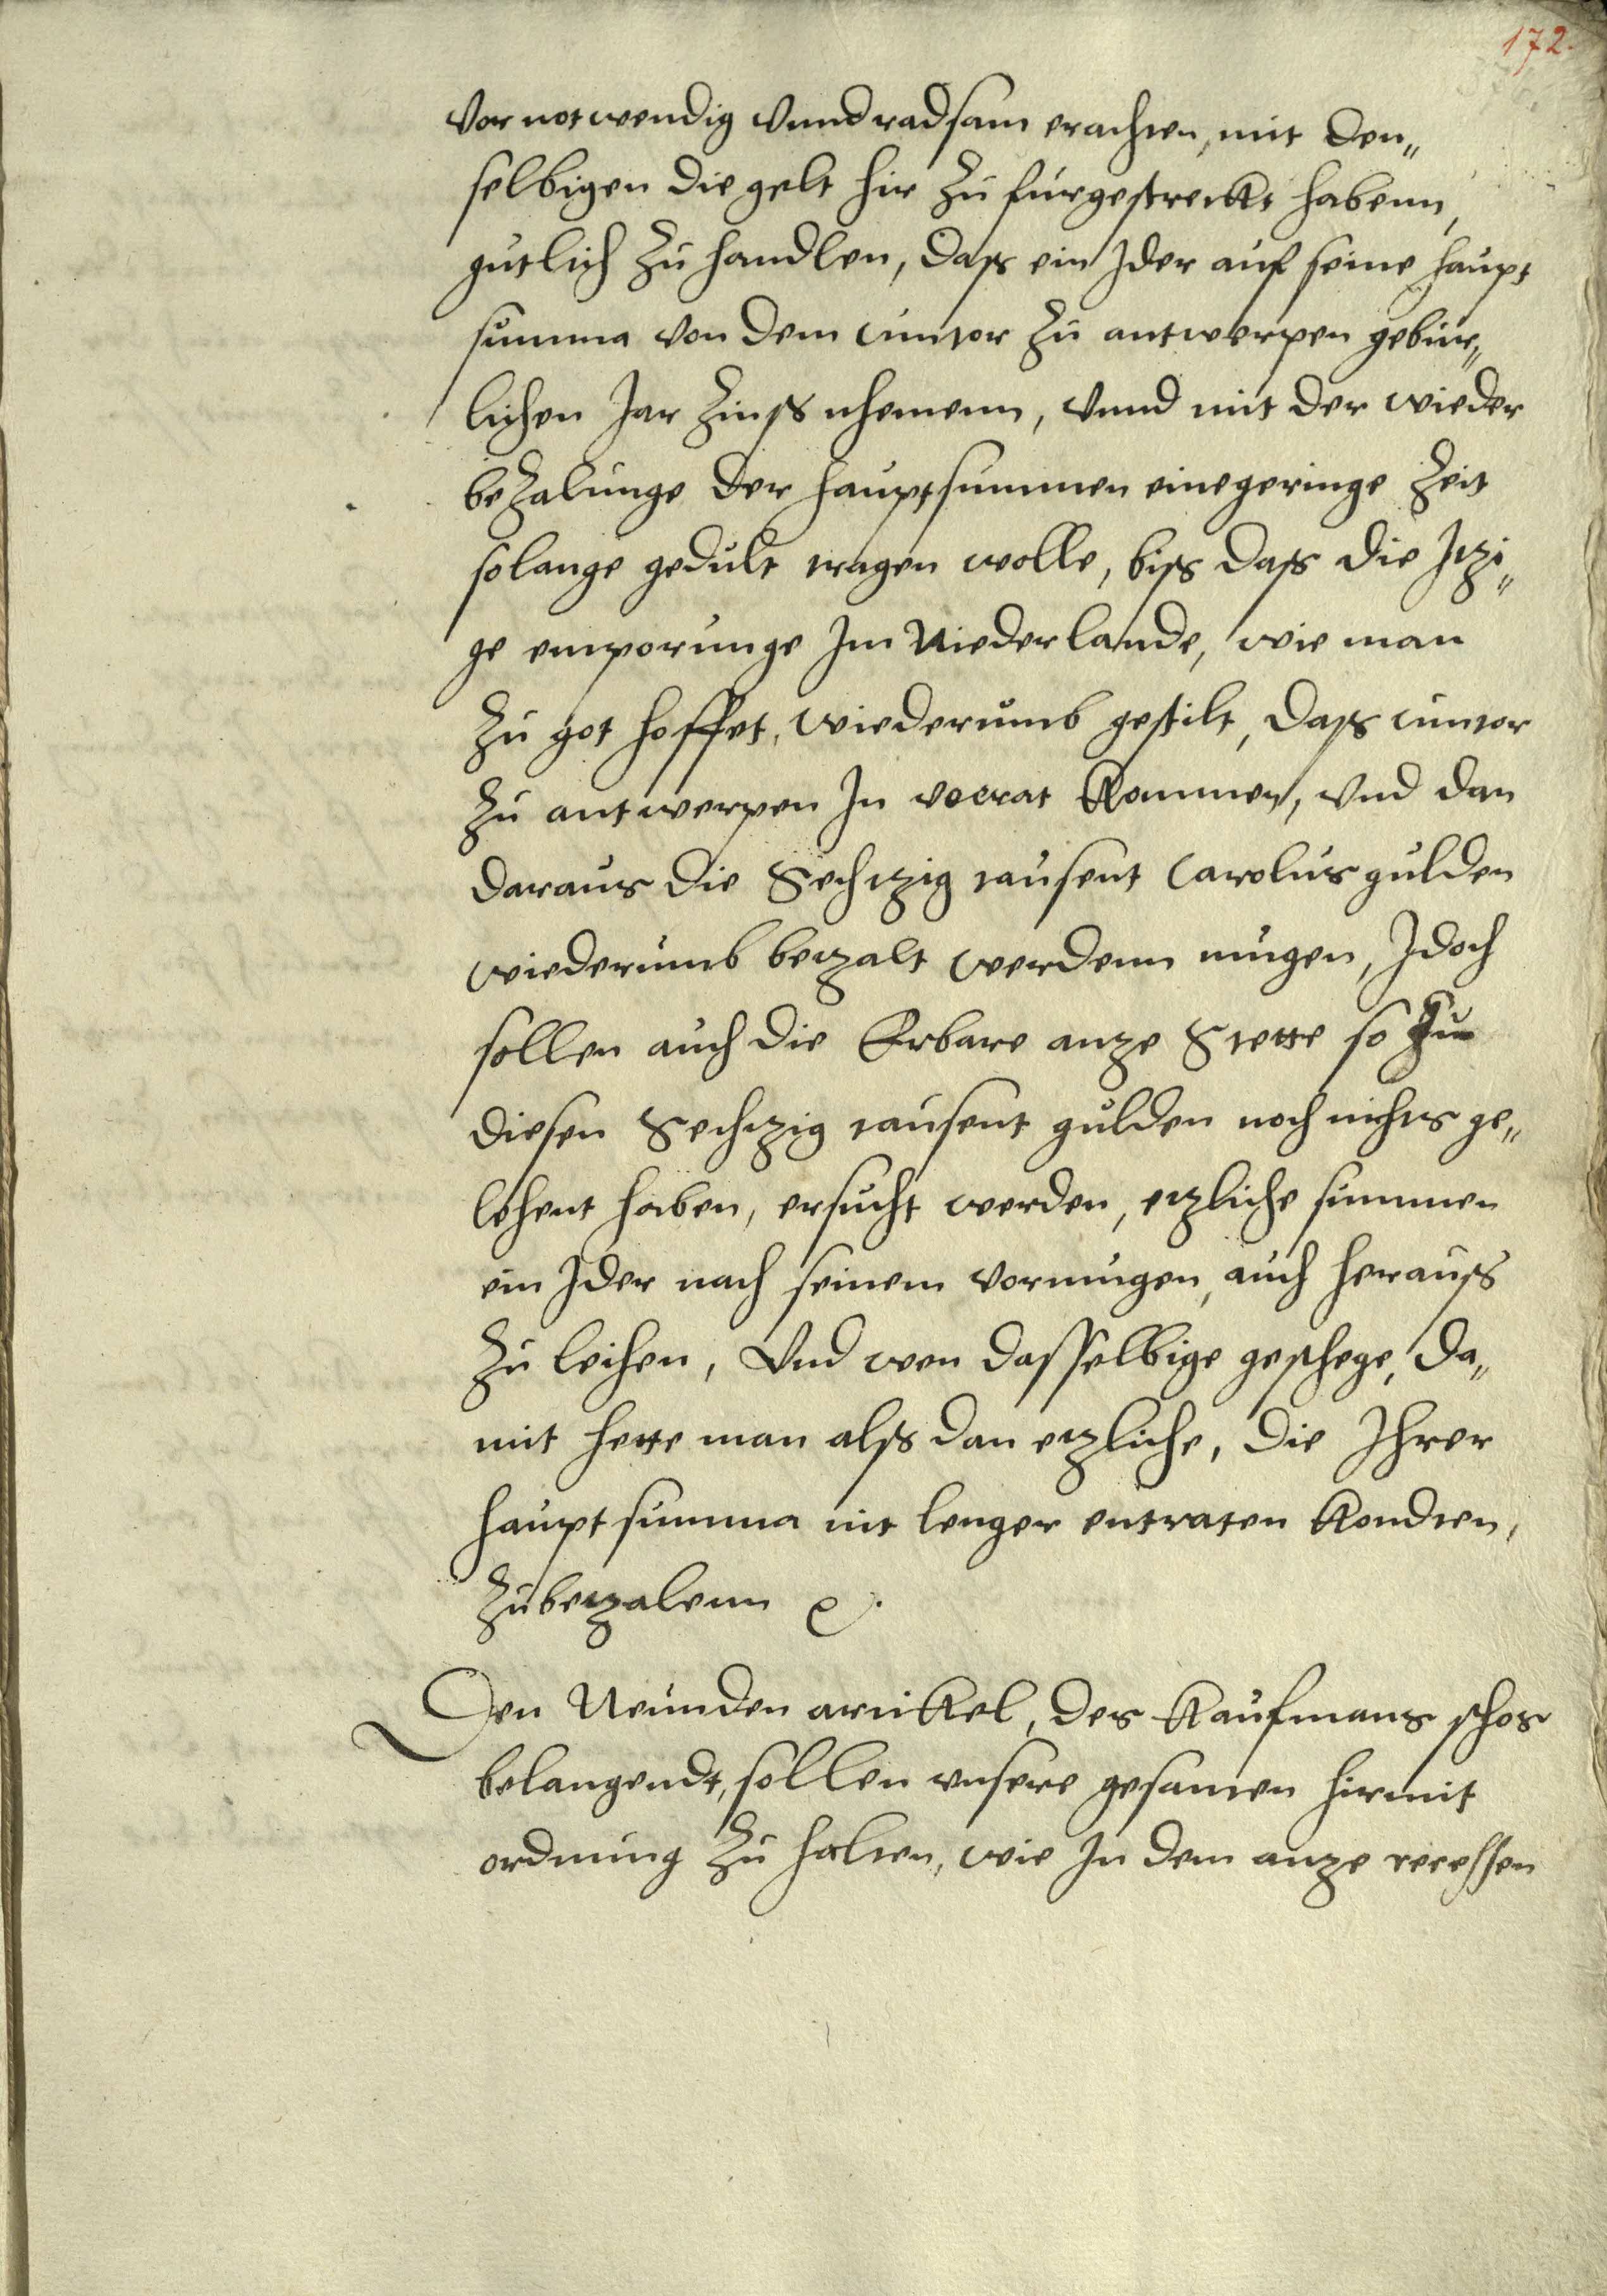 172.
vor notwendig vnnd radsam erachten, mit den„
selbigen die gelt hir zu furgestreckt habenn,
gutlich zu handlen, daß ein Jder auf seine haupt
summa von dem cuntor zu antwerpen gebur„
lichen Jar Zinß nhemenn, vnnd mit der wieder
beZalunge der hauptsummen eine geringe Zeit
solange gedult tragen wolle, biß daß die Jtzi„
ge emporunge Jm Niederlande, wie man
zu got hoffet, wiederumb gestilt, daß cuntor
zu antwerpen Jn vorrat kommen, vnd dan
daraus die Sechtzig tausent Carolus gulden
wiederumb betzalt werdenn mugen, Jdoch
sollen auch die Erbare anze Stette so zu
diesen Sechtzig tausent gulden noch nichts ge„
lehent haben, ersucht werden, etzliche summen
ein Jder nach seinem vormugen, auch herauß
zu leihen, Vnd wen dasselbige geschege, da„
mit hette man alß dan etzliche, die Jhrer
hauptsumma nit lenger entraten kondten,
zubetzalenn &.
Den Neunden artikel, des kaufmans schos
belangendt, sollen vnsere gesanten hirmit
ordnung zu halten, wie Jn dem anze recessen